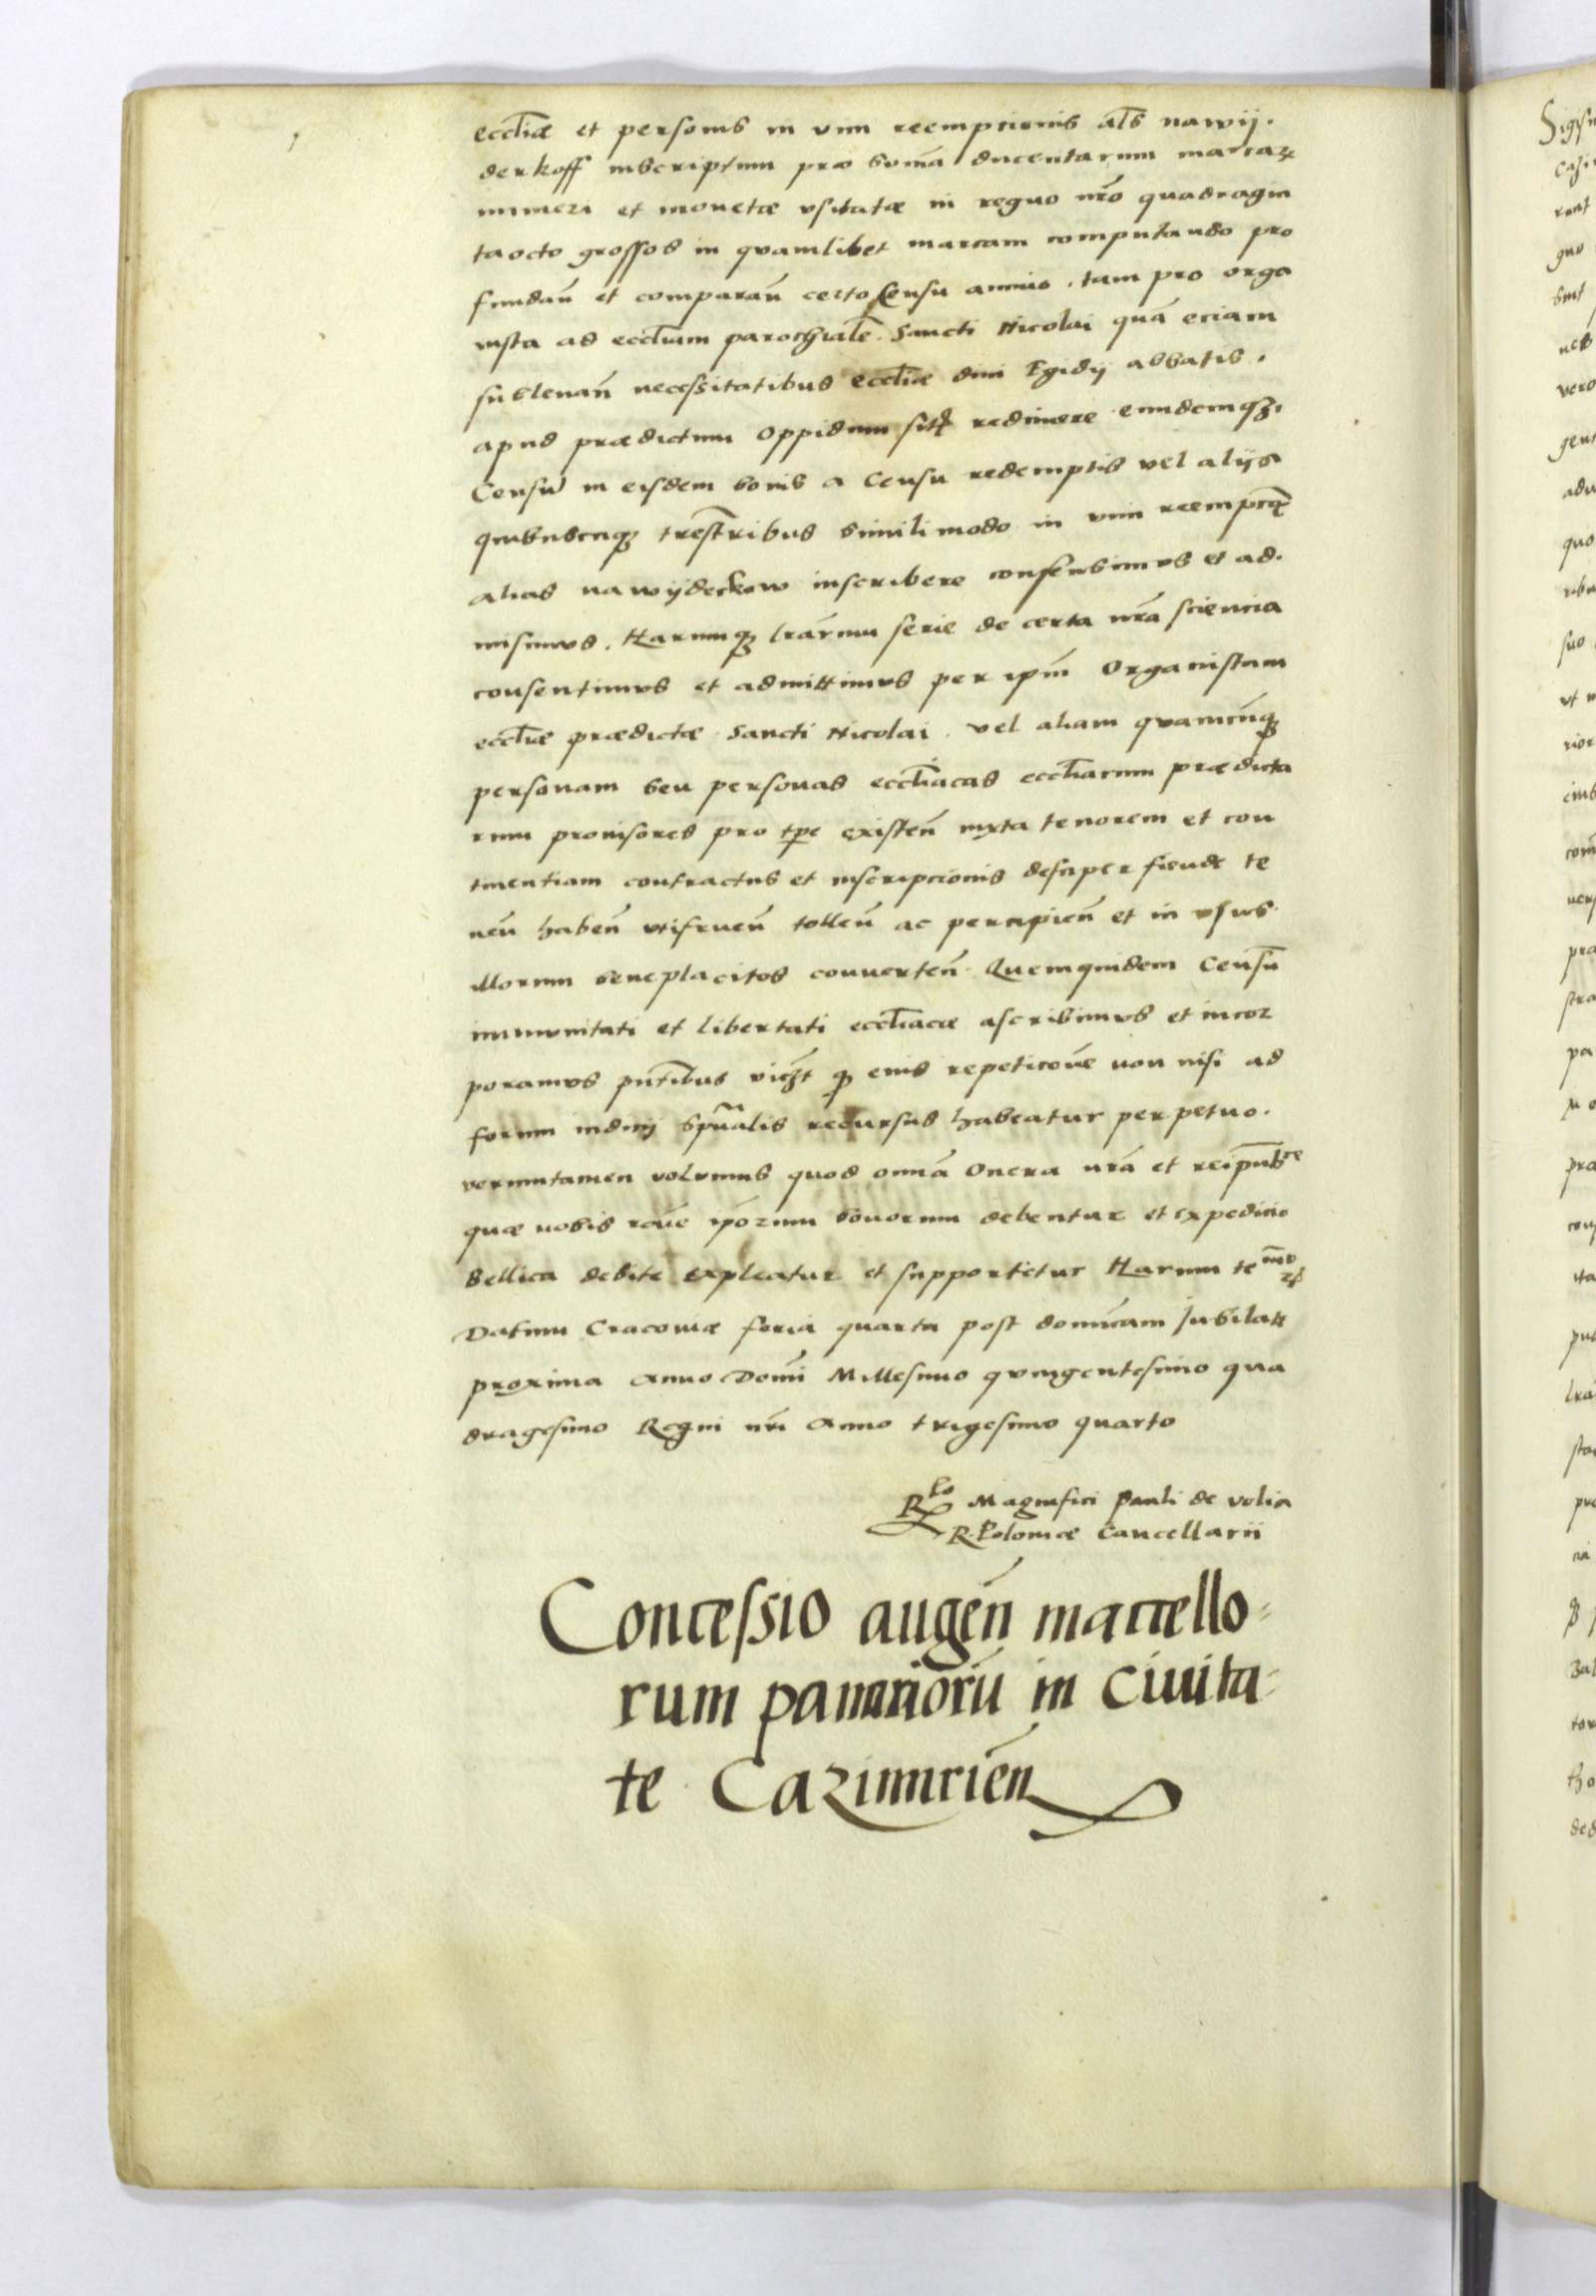 eccl̄iæ et personis in vim reempcionis al̄s nawij.
derkoff inscriptum pro som̄a ducentarum marcaꝝ
numeri et monetæ vsitatæ in regno nr̄o quadragin
taocto grossos in quamlibet marcam computando pro
fundan̄ et comparan̄ certo Censu annuo. tam pro orga
nista ad eccl̄iam parochialē. Sancti Nicolai quā eciam
subleuan̄ necessitatibus eccl̄iæ diui Egidij abbatis.
apud prædictum oppidum sitꝭ redimere eundemqꝫ
Censū in eisdem bonis a Censu redemptis vel alijs
quibuscūqꝫ trēstribus simili modo in vim reempcōis
alias nawijderkow inscribere consensimus et ad.
misimus. Harumqꝫ lrārum serie de certa nrā sciencia
consentimus et admittimus per ip̄m Organistam
eccl̄iæ prædictæ Sancti Nicolai. vel aliam quamcūqꝫ
personam seu personas eccl̄iacas eccl̄iarum prædicta
rum prouisores pro tp̄e existen̄ iuxta tenorem et con
tinentiam contractus et inscripcionis desuper fiendæ te
nen̄ haben̄ vtifruen̄ tollen̄ ac percipien̄ et in vsus
illorum beneplacitos conuerten̄. Quemquidem Censū
immunitati et libertati eccl̄iacæ ascribimus et incor
poramus pn̄tibus viꝫt ꝙ eius repeticōne non nisi ad
forum iudicij spūalis recursus habeatur perpetuo.
verumtamen volumus quod omīa Onera nrā et reipub̄ce
quæ nobis rōne ip̄orum bonorum debentur et expedicio
Bellica debite expleatur et supportetur Harum te mō
Datum Cracouiæ feria quarta post domīcam Jubilate
proxima Anno Domī Millesimo quingentesimo qua
dragesimo Regni nr̄i Anno trigesimo quarto
Rlo Magnifici Pauli de volia
R. Poloniæ Cancellarii
Concessio augen̄ maccello-
rum panariorū in Ciuita-
te Cazimirien̄